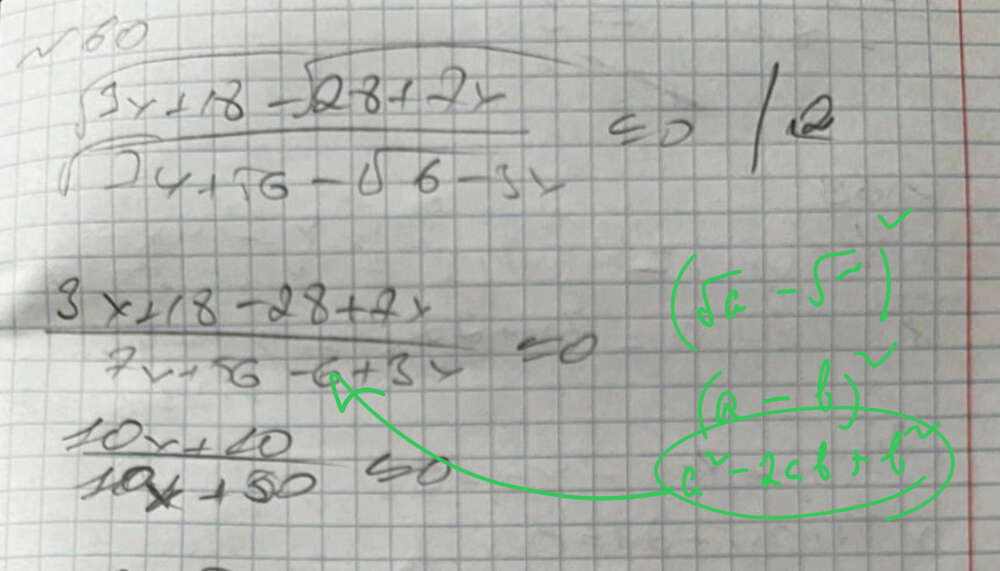 №60
√3x+18 - √28+7x
√7x+56 - √6-3x
≤0 / 2
3x+18-28+7x
7x+56-6+3x
≤0
10x+10
10x+50
≤0
(√a - √‾)²
(a - b)²
a²-2ab+b²